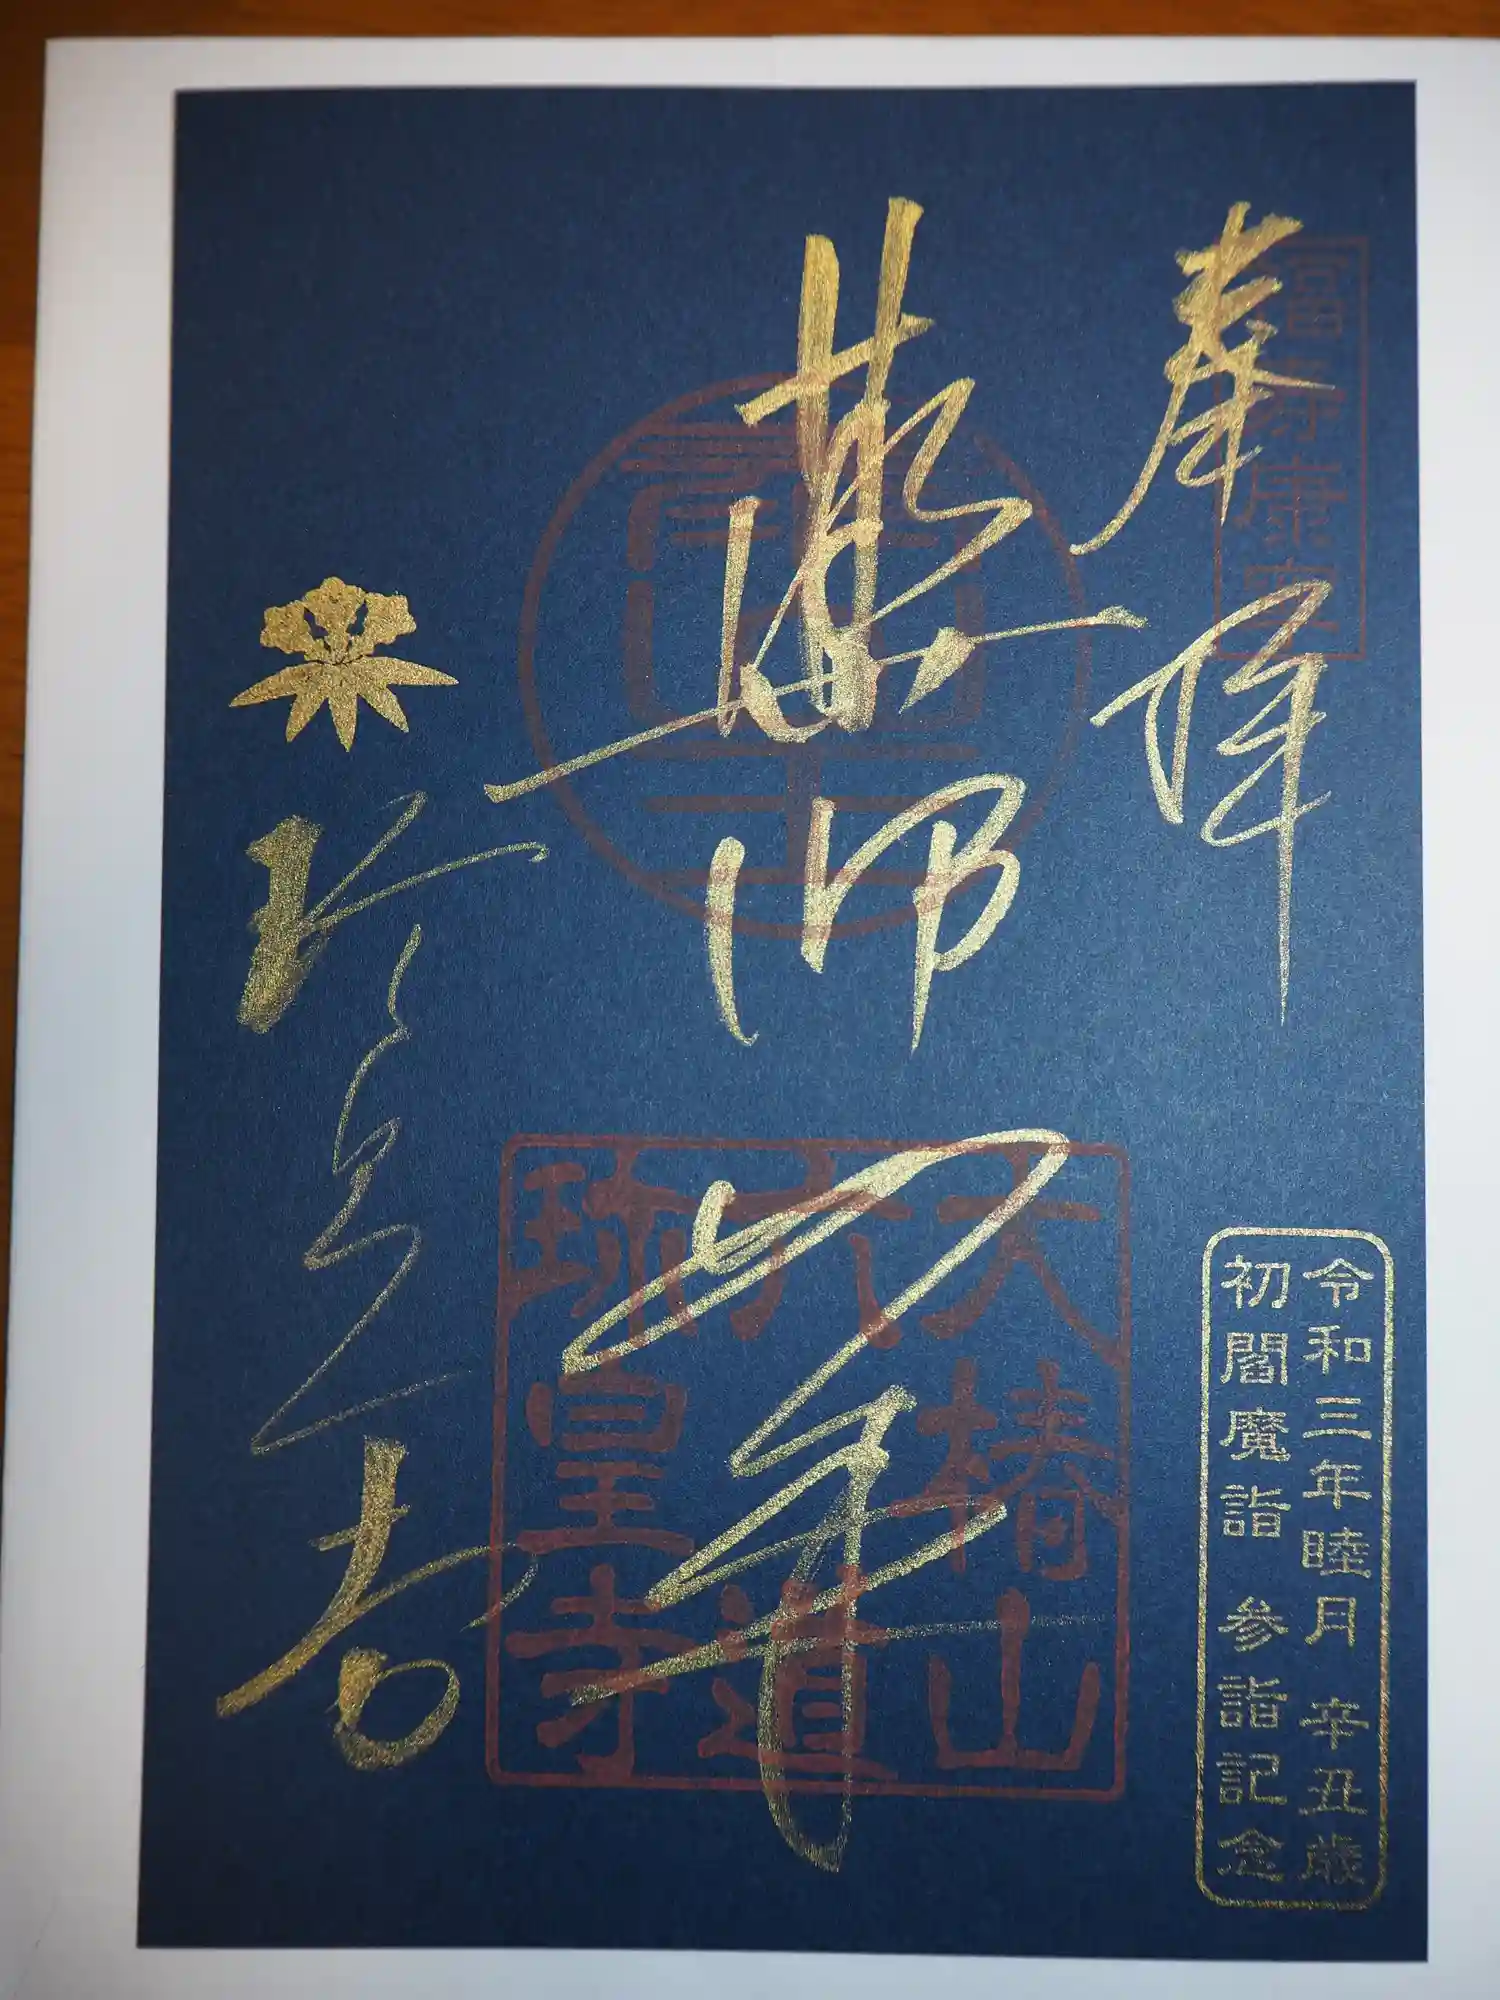 奉拝
福寿康寧
令和三年睦月 辛丑歳
初閻魔詣 参詣記念
薬師如来
大椿山
六道
珍皇寺
珍皇寺